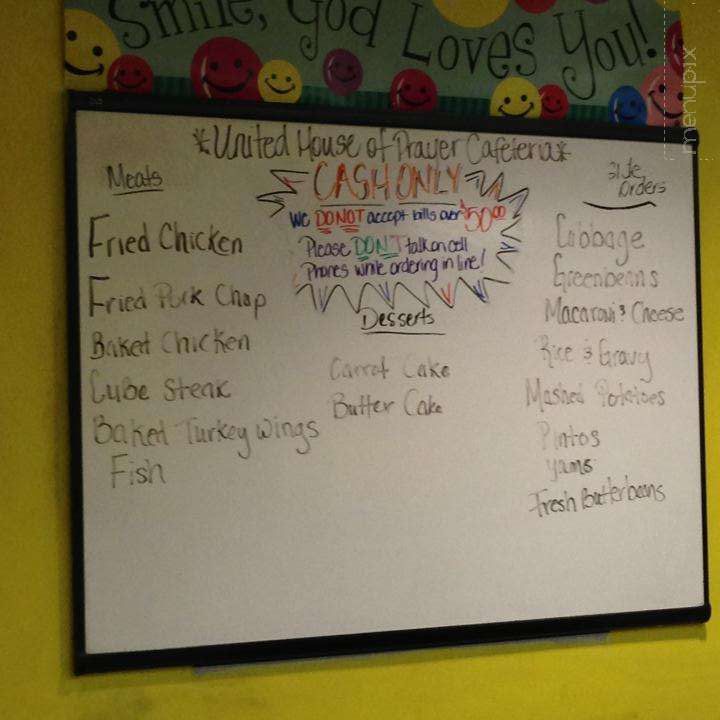 Smile, God Loves You!
menupix
*United House of Prayer Cafeteria*
Meats
Fried Chicken
Fried Pork Chop
Baked Chicken
Cube Steak
Baked Turkey Wings
Fish
CASH ONLY
We DO NOT accept bills over $50.00
Please DON'T talk on cell
Phones while ordering in line!
Desserts
Carrot Cake
Butter Cake
Side
Orders
Cabbage
Greenbeans
Macaroni & Cheese
Rice & Gravy
Mashed Potatoes
Pintos
Yams
Fresh Butterbeans